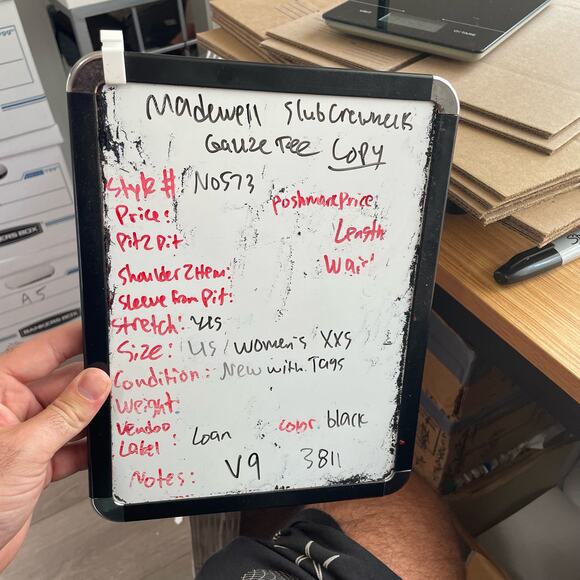 Madewell Slub Crewneck
Gauze Tee Copy
Style #: N0573
Price: Poshmark Price:
Pit2Pit Length
Shoulder2Hem: Waist
Sleeve From Pit:
Stretch: yes
Size: US / Women's XXS
Condition: New with Tags
Weight
Vendoo Label: Loan Color: black
Notes: V9 3811
BANKERS BOX
A5
BANKERS BOX